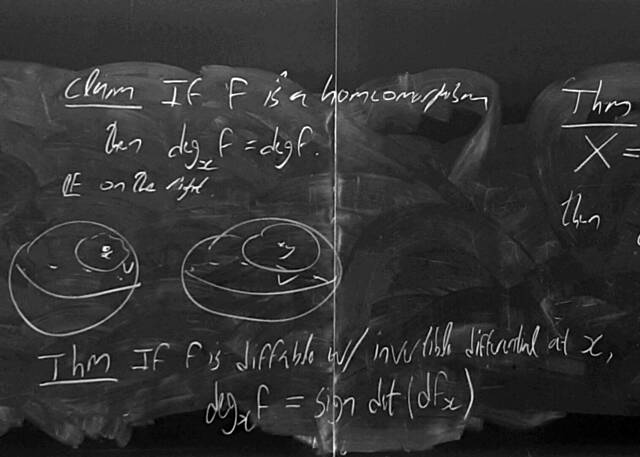 Claim If F is a homeomorphism
then deg_x F = deg F.
PF on the right.
x U
y V
Thm If F is diffable w/ invertible differential at x,
deg_x F = sign det (dF_x)
Thm
X =
then